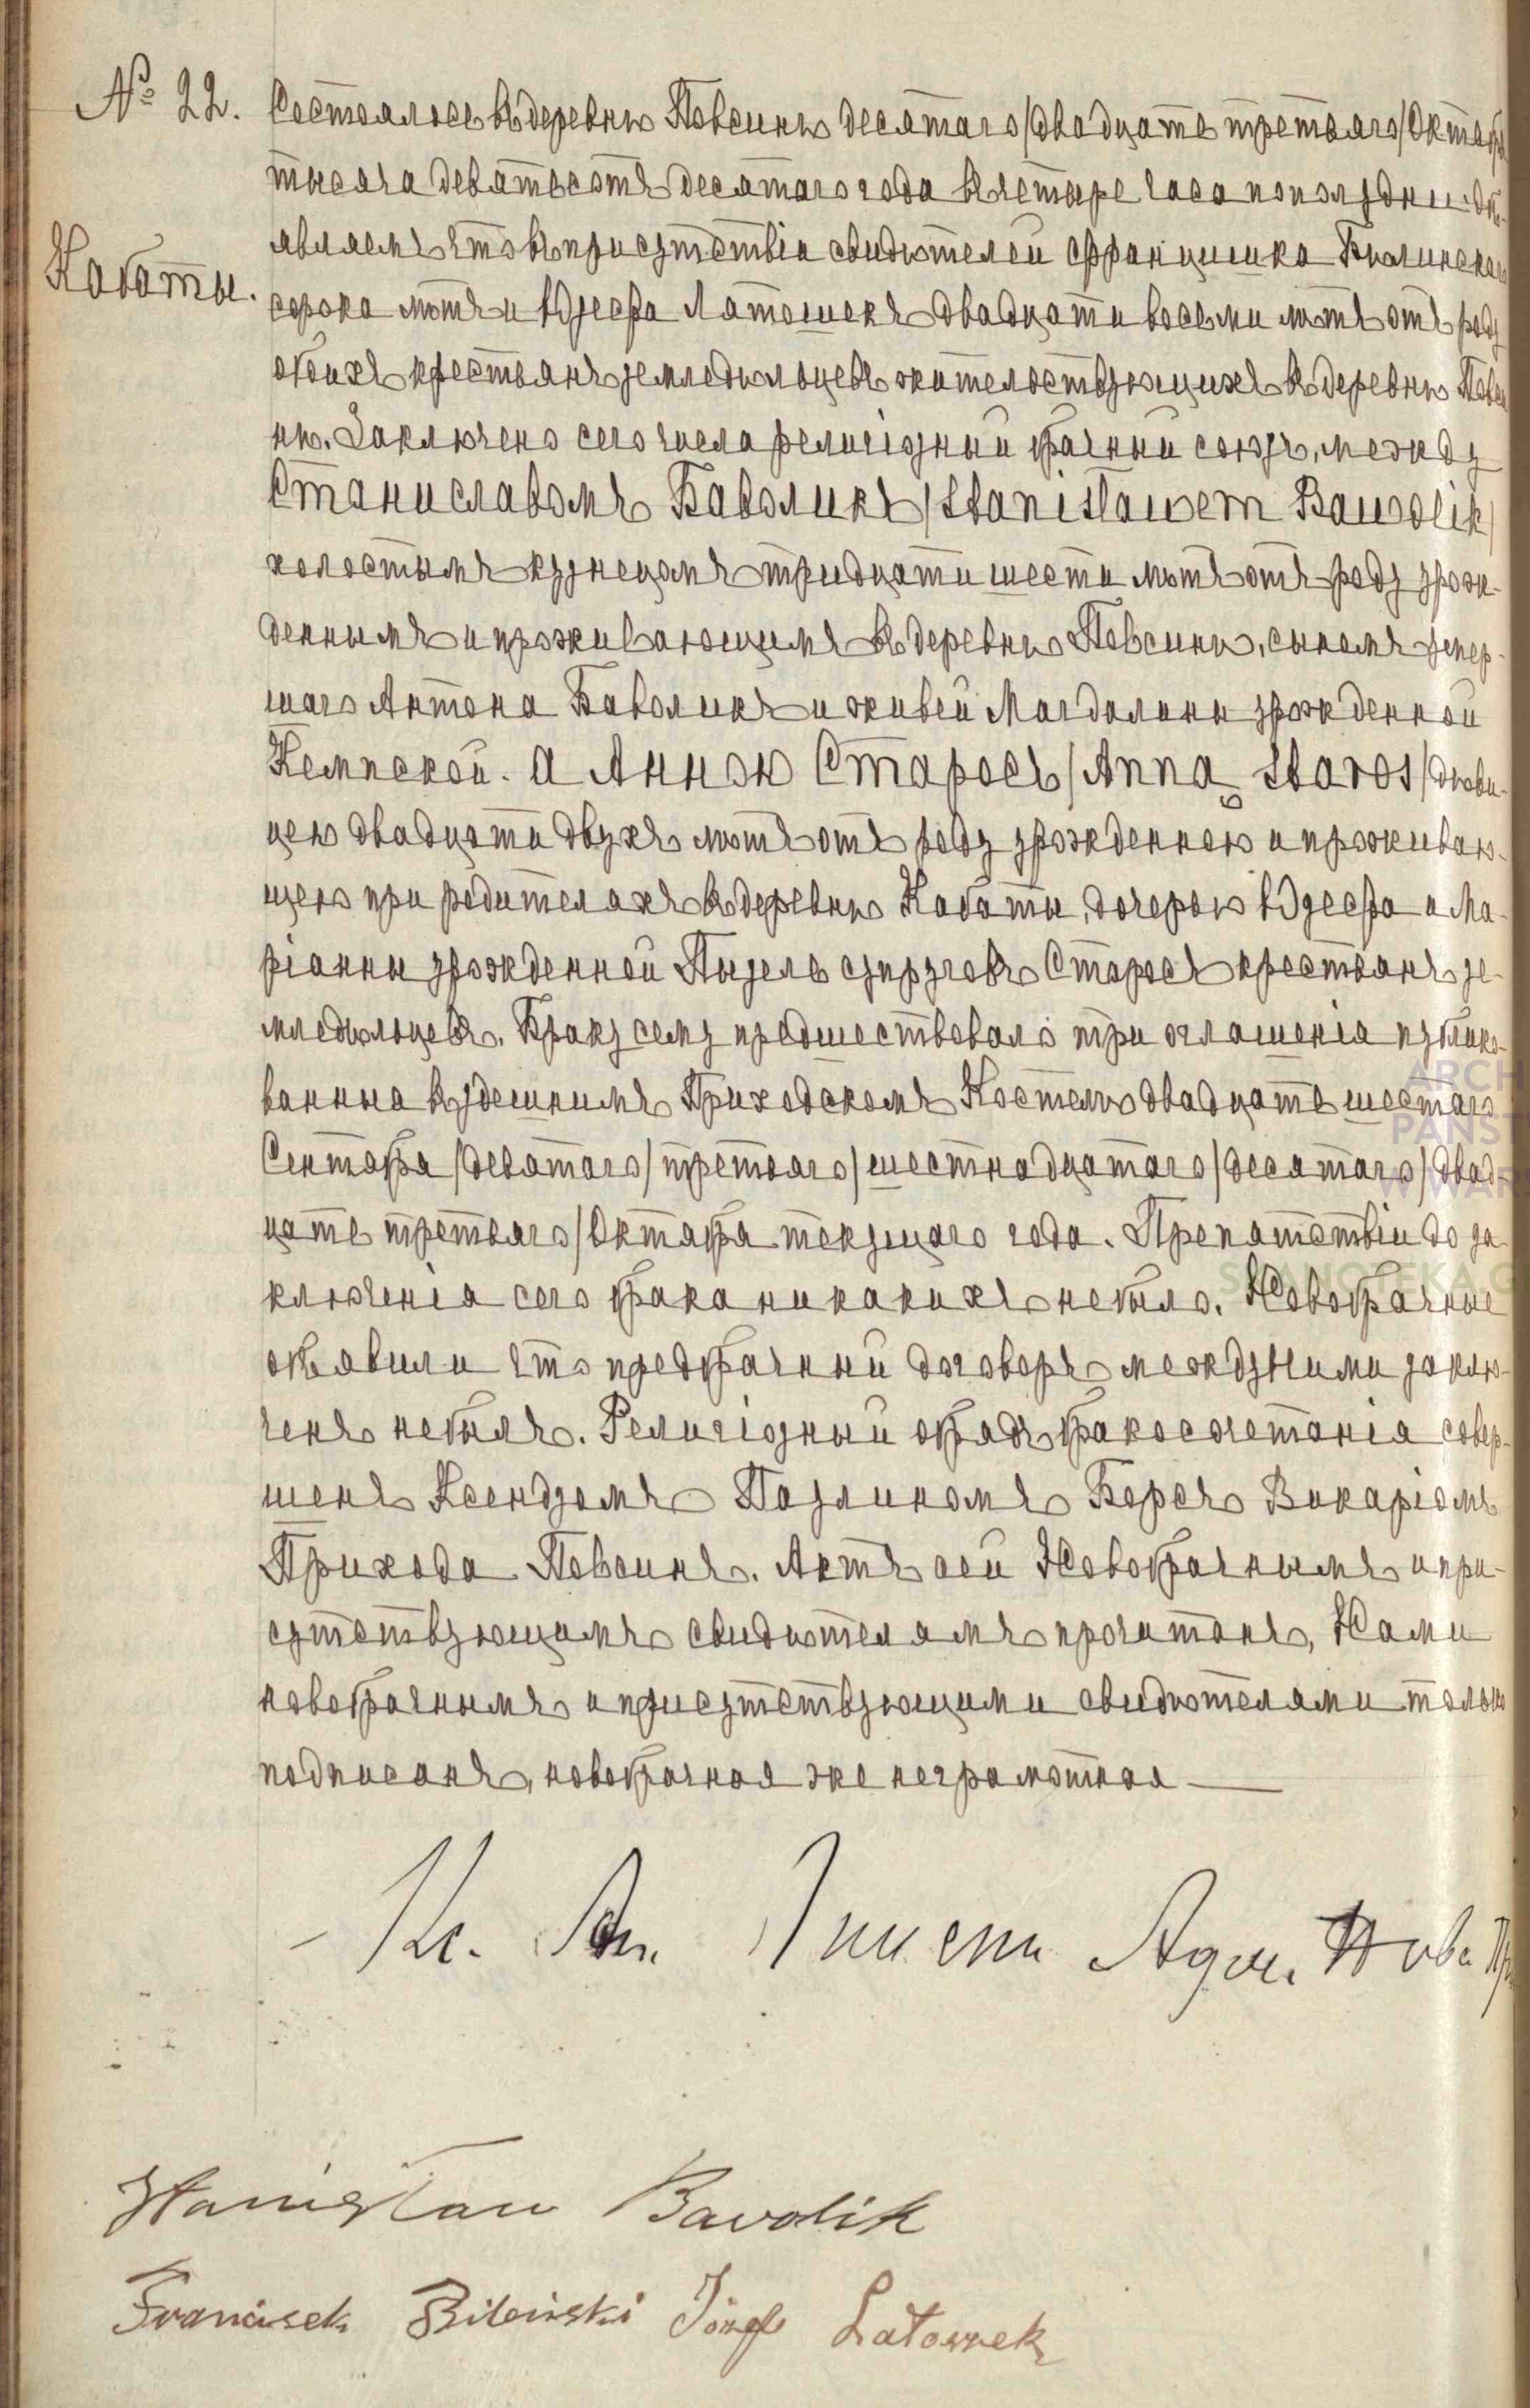 № 22.
Кабаты.
Состоялось въ деревнѣ Повсинѣ десятаго /двадцать третьяго/ Октября
тысяча девятьсотъ десятаго года въ четыре часа пополудни. Объ-
являемъ что въ присутствіи свидѣтелей Францишка Билинскаго
сорока лѣтъ и Юзефа Латошекъ двадцати восьми лѣтъ отъ роду
обоихъ крестьянъ земледѣльцевъ жительствующихъ въ деревнѣ Повси-
нѣ. Заключено сего числа религіозный брачный союзъ, между
Станиславомъ Баволикъ /Stanisławem Bawolik/
холостымъ кузнецомъ тридцати шести лѣтъ отъ роду урож-
деннымъ и проживающимъ въ деревнѣ Повсинѣ, сыномъ умер-
шаго Антона Баволикъ и живей Магдалины урожденной
Кемпской. а Анною Старосъ /Anną Staros/ дѣви-
цею двадцати двухъ лѣтъ отъ роду урожденною и проживаю-
щею при родителахъ въ деревнѣ Кабаты, дочерью Юзефа и Ма-
ріанны урожденной Пызель супруговъ Старосъ крестьянъ зе-
мледѣльцевъ. Браку сему предшествовало три оглашенія публико-
ванныа въ здешнимъ Приходскомъ Костелѣ двадцать шестаго
Сентабра /девятаго/ третьяго /шестнадцатаго/ десятаго /двад-
цать третьяго/ Октября текущаго года. Препатствіи до за
ключенія сего брака никакихъ небыло. Новобрачные
объявили что предбрачный договоръ между ними заклю-
ченъ небылъ. Религіозный обрядъ бракосочетанія совер-
шенъ Ксендзомъ Паулиномъ Борсъ Викаріомъ
Прихода Повсинъ. Актъ сей Новобрачнымъ и при-
сутствующимъ свидѣтелямъ прочитанъ, Нами
новобрачнымъ и присутствующими свидѣтелями только
подписанъ, новобрачная же неграмотная
Кс. Адм. Пов.
Stanisław Bavolik
Francisek Bileński Józef Latoszek